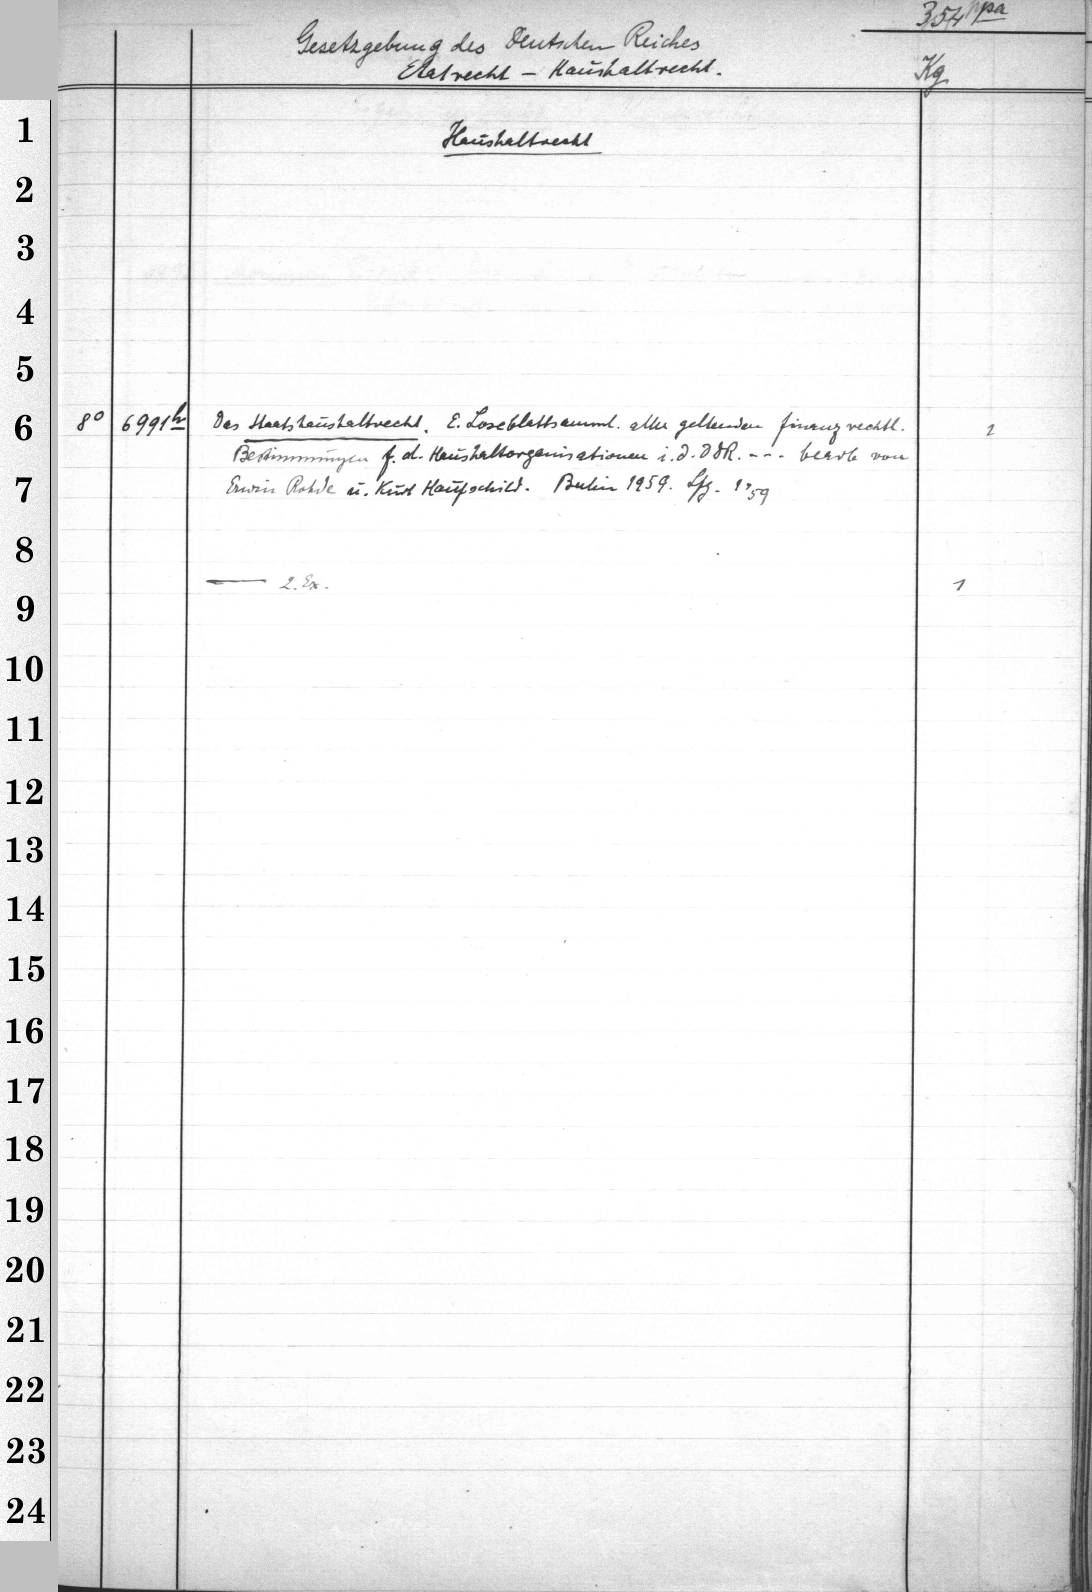 354 ppa
Gesetzgebung des Deutschen Reiches
Etatrecht – Haushaltrecht.
Kg
1
Haushaltrecht
2
3
4
5
6
8° 6991h Das Staatshaushaltrecht. E. Loseblattsamml. aller geltenden finanzrechtl. 1
Bestimmungen f. d. Haushaltorganisationen i. d. DDR. --- bearb von
7
Erwin Rohde u. Kurt Haufschild. Berlin 1959. Lfg. 1,59
8
— 2. Ex. 1
9
10
11
12
13
14
15
16
17
18
19
20
21
22
23
24